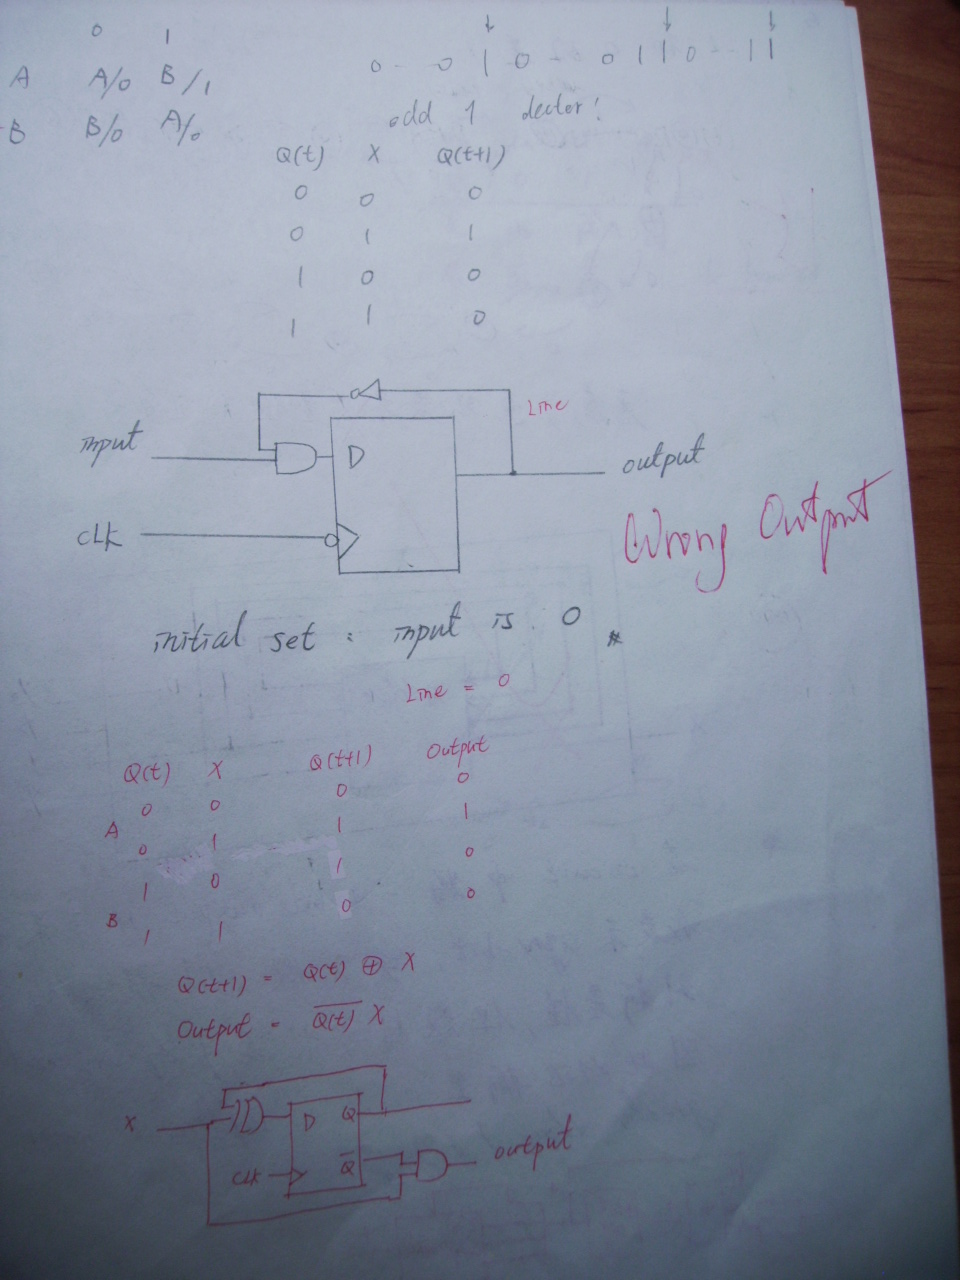 0 1
A A/0 B/1
B B/0 A/0
0 - - 0 1 0 - - 0 1 1 0 - - 1 1
odd 1 dector!
Q(t) X Q(t+1)
0 0 0
0 1 1
1 0 0
1 1 0
Line
input D output
CLK
Wrong Output
initial set : input is 0
Line = 0
Q(t) X Q(t+1) Output
0 0 0 0
A
0 1 1 1
1 0 1 0
B
1 1 0 0
Q(t+1) = Q(t) ⊕ X
Output = Q̅(̅t̅)̅ X
X D Q
CLK Q̅ output